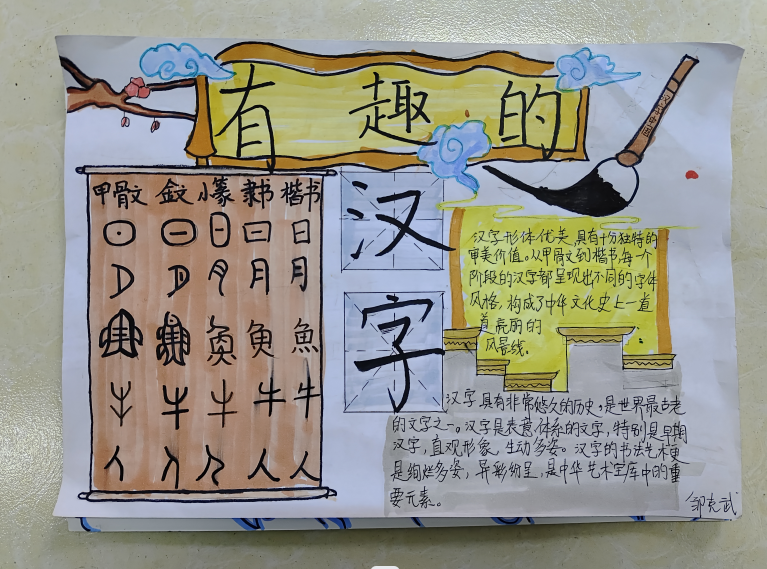 有趣的
汉字
甲骨文 金文 小篆 隶书 楷书
日
月
魚
牛
人
汉字形体优美,具有十分独特的
审美价值。从甲骨文到楷书,每一个
阶段的汉字都呈现出不同的字体
风格,构成了中华文化史上一道
道亮丽的
风景线。
汉字具有非常悠久的历史,是世界最古老
的文字之一。汉字是表意体系的文字,特别是早期
汉字,直观形象,生动多姿。汉字的书法艺术更
是绚烂多姿,异彩纷呈,是中华艺术宝库中的重
要元素。
邹克武